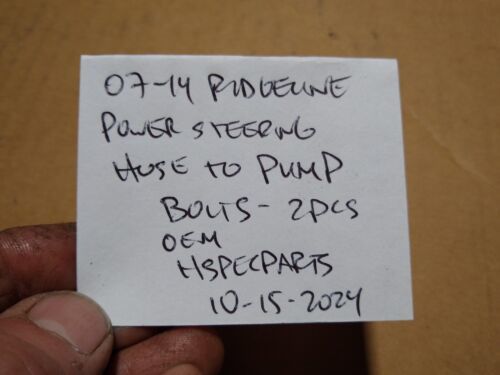 07-14 RIDGELINE
POWER STEERING
HOSE TO PUMP
BOLTS - 2PCS
OEM
HSPECPARTS
10-15-2024